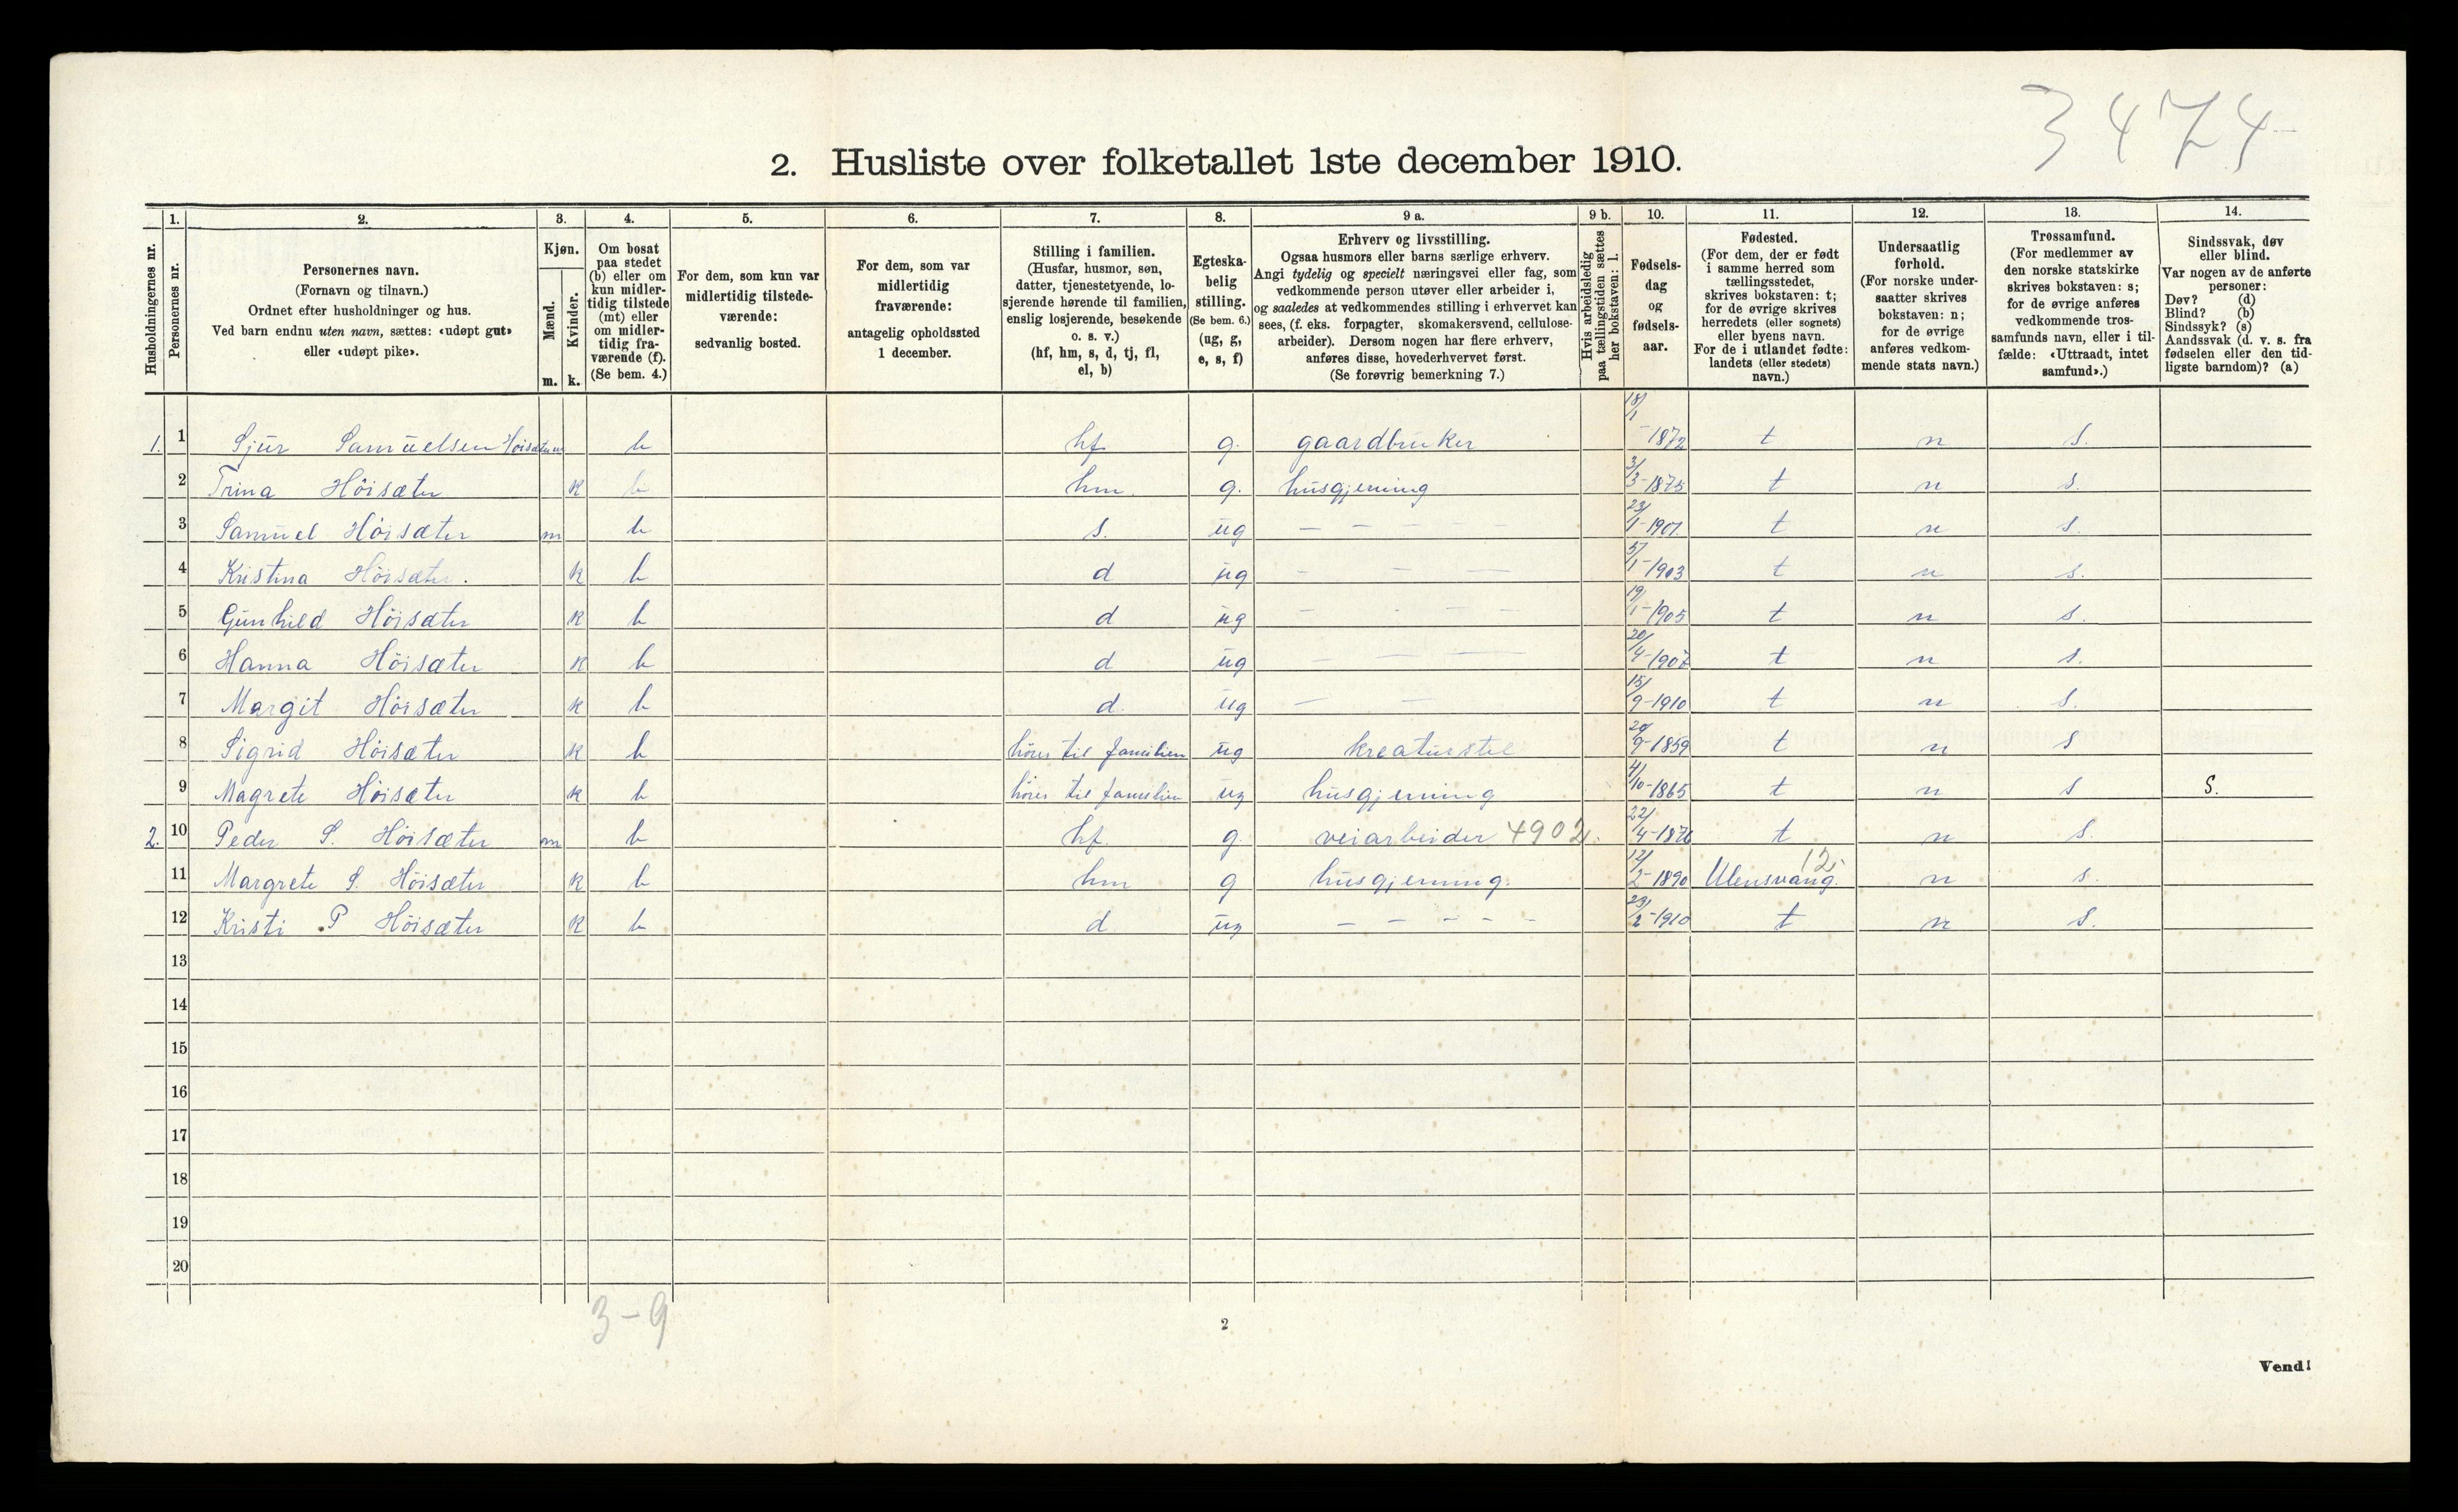 3474
2. Husliste over folketallet 1ste december 1910.
Husholdningernes nr.
1. Personernes nr.
2. Personernes navn.
(Fornavn og tilnavn.)
Ordnet efter husholdninger og hus.
Ved barn endnu uten navn, sættes: «udøpt gut»
eller «udøpt pike».
3. Kjøn.
Mænd. m.
Kvinder. k.
4. Om bosat
paa stedet
(b) eller om
kun midler-
tidig tilstede
(mt) eller
om midler-
tidig fra-
værende (f).
(Se bem. 4.)
5. For dem, som kun var
midlertidig tilstede-
værende:
sedvanlig bosted.
6. For dem, som var
midlertidig
fraværende:
antagelig opholdssted
1 december.
7. Stilling i familien.
(Husfar, husmor, søn,
datter, tjenestetyende, lo-
sjerende hørende til familien,
enslig losjerende, besøkende
o. s. v.)
(hf, hm, s, d, tj, fl,
el, b)
8. Egteska-
belig
stilling.
(Se bem. 6.)
(ug, g,
e, s, f)
9 a. Erhverv og livsstilling.
Ogsaa husmors eller barns særlige erhverv.
Angi tydelig og specielt næringsvei eller fag, som
vedkommende person utøver eller arbeider i,
og saaledes at vedkommendes stilling i erhvervet kan
sees, (f. eks. forpagter, skomakersvend, cellulose-
arbeider). Dersom nogen har flere erhverv,
anføres disse, hovederhvervet først.
(Se forøvrig bemerkning 7.)
9 b. Hvis arbeidsledig
paa tællingstiden sættes
her bokstaven: l.
10. Fødsels-
dag
og
fødsels-
aar.
11. Fødested.
(For dem, der er født
i samme herred som
tællingsstedet,
skrives bokstaven: t;
for de øvrige skrives
herredets (eller sognets)
eller byens navn.
For de i utlandet fødte:
landets (eller stedets)
navn.)
12. Undersaatlig
forhold.
(For norske under-
saatter skrives
bokstaven: n;
for de øvrige
anføres vedkom-
mende stats navn.)
13. Trossamfund.
(For medlemmer av
den norske statskirke
skrives bokstaven: s;
for de øvrige anføres
vedkommende tros-
samfunds navn, eller i til-
fælde: «Uttraadt, intet
samfund».)
14. Sindssvak, døv
eller blind.
Var nogen av de anførte
personer:
Døv? (d)
Blind? (b)
Sindssyk? (s)
Aandssvak (d. v. s. fra
fødselen eller den tid-
ligste barndom)? (a)
1. 1 Sjur Samuelsen Höisæter m b hf g. gaardbruker 18/1-1872 t n s.
2 Trina Höisæter k b hm. g. husgjerning 3/3-1875 t n s.
3 Samuel Höisæter m b s. ug — — — 23/1-1901 t n s.
4 Kristina Höisæter. k b d ug — — — 5/1-1903 t n s.
5 Gunhild Höisæter k b d ug — — — 19/1-1905 t n s.
6 Hanna Höisæter k b d ug — — — 20/4-1907 t n s.
7 Margit Höisæter k b d. ug — — 15/9-1910 t n s.
8 Sigrid Höisæter k b hörer til familien ug kreaturstel 20/9-1859 t n s
9 Magrete Höisæter k b hörer til familien ug husgjerning 4/10-1865 t n s S.
2. 10 Peder S. Höisæter m b hf. g. veiarbeider 4902. 22/4-1876 t n s.
11 Margrete S. Höisæter k b hm g husgjerning. 12/2-1890 Ulensvang. 12 n s.
12 Kristi P Höisæter k b d ug — — — — — 23/2-1910 t n s.
13
14
15
16
17
18
19
20
3-9
2
Vend!